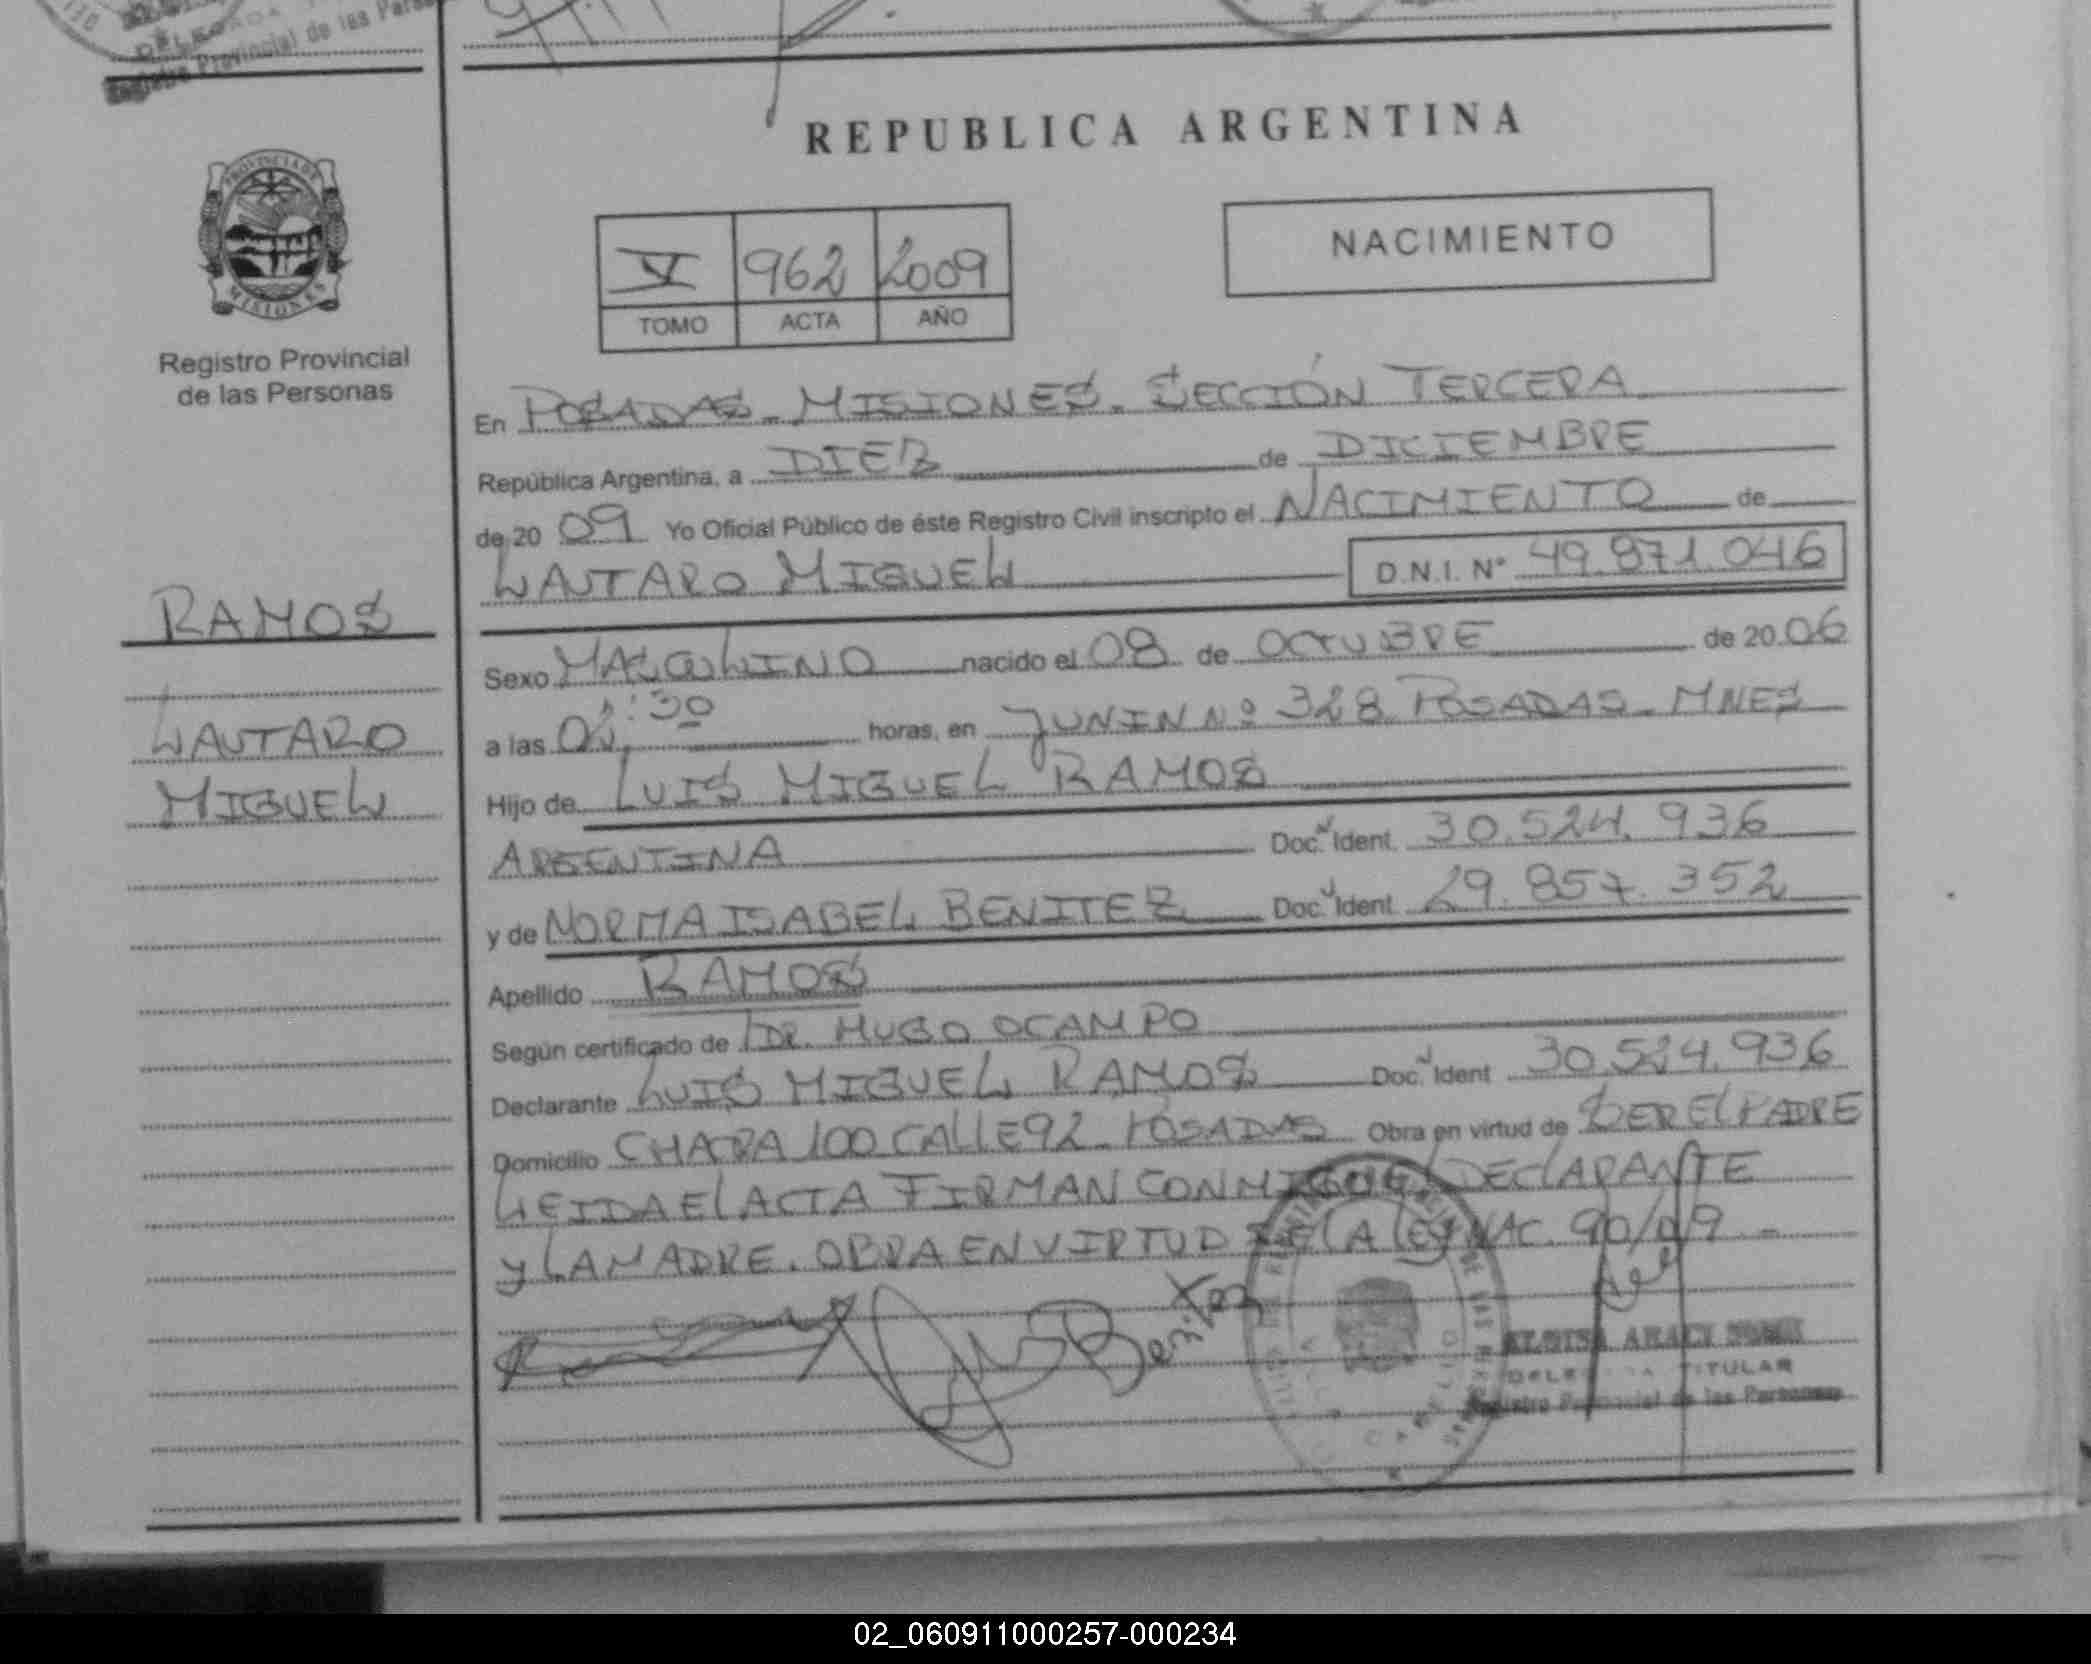 DELEGADA
Registro Provincial de las Personas
REPUBLICA ARGENTINA
PROVINCIA DE
MISIONES
Registro Provincial
de las Personas
V 962 2009
TOMO ACTA AÑO
NACIMIENTO
En POSADAS - MISIONES - SECCIÓN TERCERA
República Argentina, a DIEZ de DICIEMBRE
de 20 09 Yo Oficial Público de éste Registro Civil inscripto el NACIMIENTO de
LAUTARO MIGUEL D.N.I. N° 49.871.046
RAMOS
LAUTARO
MIGUEL
Sexo MASCULINO nacido el 08 de OCTUBRE de 20 06
a las :30 horas, en JUNIN Nº 328 POSADAS - MNES
Hijo de LUIS MIGUEL RAMOS
ARGENTINA Doc. Ident. 30.524.936
y de NORMA ISABEL BENITEZ Doc. Ident 29.857.352
Apellido RAMOS
Según certificado de DR. HUGO OCAMPO
Declarante LUIS MIGUEL RAMOS Doc. Ident 30.524.936
Domicilio CHACRA 100 CALLE 92 - POSADAS Obra en virtud de SER EL PADRE
LEIDA EL ACTA FIRMAN CONMIGO DECLARANTE
y LA MADRE. OBRA EN VIRTUD DE LA LEY NAC. 90/09 -
Benitez
TITULAR
Registro Provincial de las Personas
02_060911000257-000234